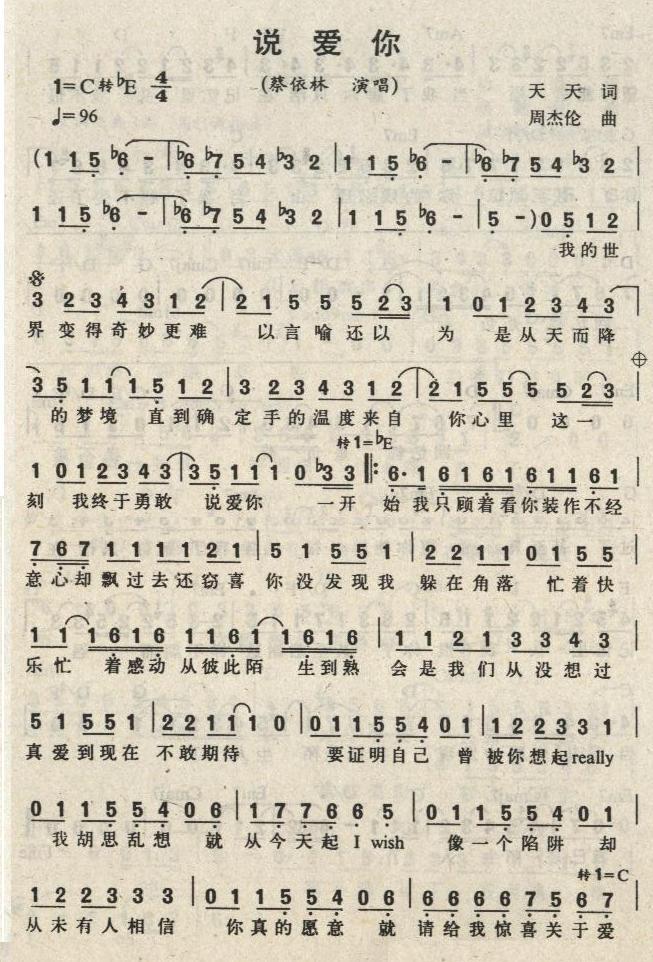 说 爱 你
1=C转♭E 4/4
(蔡依林 演唱)
天 天 词
♩=96
周杰伦 曲
(1 1 5 ♭6 - | ♭6 ♭7 5 4 ♭3 2 | 1 1 5 ♭6 - | ♭6 ♭7 5 4 ♭3 2 |
1 1 5 ♭6 - | ♭6 ♭7 5 4 ♭3 2 | 1 1 5 ♭6 - | 5 - ) 0 5 1 2
我 的 世
3 2 3 4 3 1 2 | 2 1 5 5 5 2 3 | 1 0 1 2 3 4 3
界 变 得 奇 妙 更 难 以 言 喻 还 以 为 是 从 天 而 降
3 5 1 1 1 5 1 2 | 3 2 3 4 3 1 2 | 2 1 5 5 5 5 2 3
的 梦 境 直 到 确 定 手 的 温 度 来 自 你 心 里 这 一
转1=♭E
1 0 1 2 3 4 3 | 3 5 1 1 1 0 ♭3 3 ‖: 6· 1 6 1 6 1 6 1 1 6 1
刻 我 终 于 勇 敢 说 爱 你 一 开 始 我 只 顾 着 看 你 装 作 不 经
7 6 7 1 1 1 1 2 1 | 5 1 5 5 1 | 2 2 1 1 0 1 5 5
意 心 却 飘 过 去 还 窃 喜 你 没 发 现 我 躲 在 角 落 忙 着 快
1 1 1 6 1 6 1 1 6 1 1 6 1 6 | 1 1 2 1 3 3 4 3
乐 忙 着 感 动 从 彼 此 陌 生 到 熟 会 是 我 们 从 没 想 过
5 1 5 5 1 | 2 2 1 1 1 0 | 0 1 1 5 5 4 0 1 | 1 2 2 3 3 1
真 爱 到 现 在 不 敢 期 待 要 证 明 自 己 曾 被 你 想 起 really
0 1 1 5 5 4 0 6 | 1 7 7 6 6 5 | 0 1 1 5 5 4 0 1
我 胡 思 乱 想 就 从 今 天 起 I wish 像 一 个 陷 阱 却
转1=C
1 2 2 3 3 3 | 0 1 1 5 5 4 0 6 | 6 6 6 6 7 5 6 7
从 未 有 人 相 信 你 真 的 愿 意 就 请 给 我 惊 喜 关 于 爱